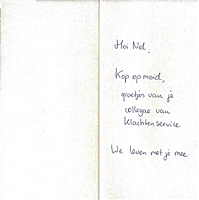 Hoi Nel,
Kop op meid,
groetjes van je
collegae van
klachtenservice
We leven met je mee